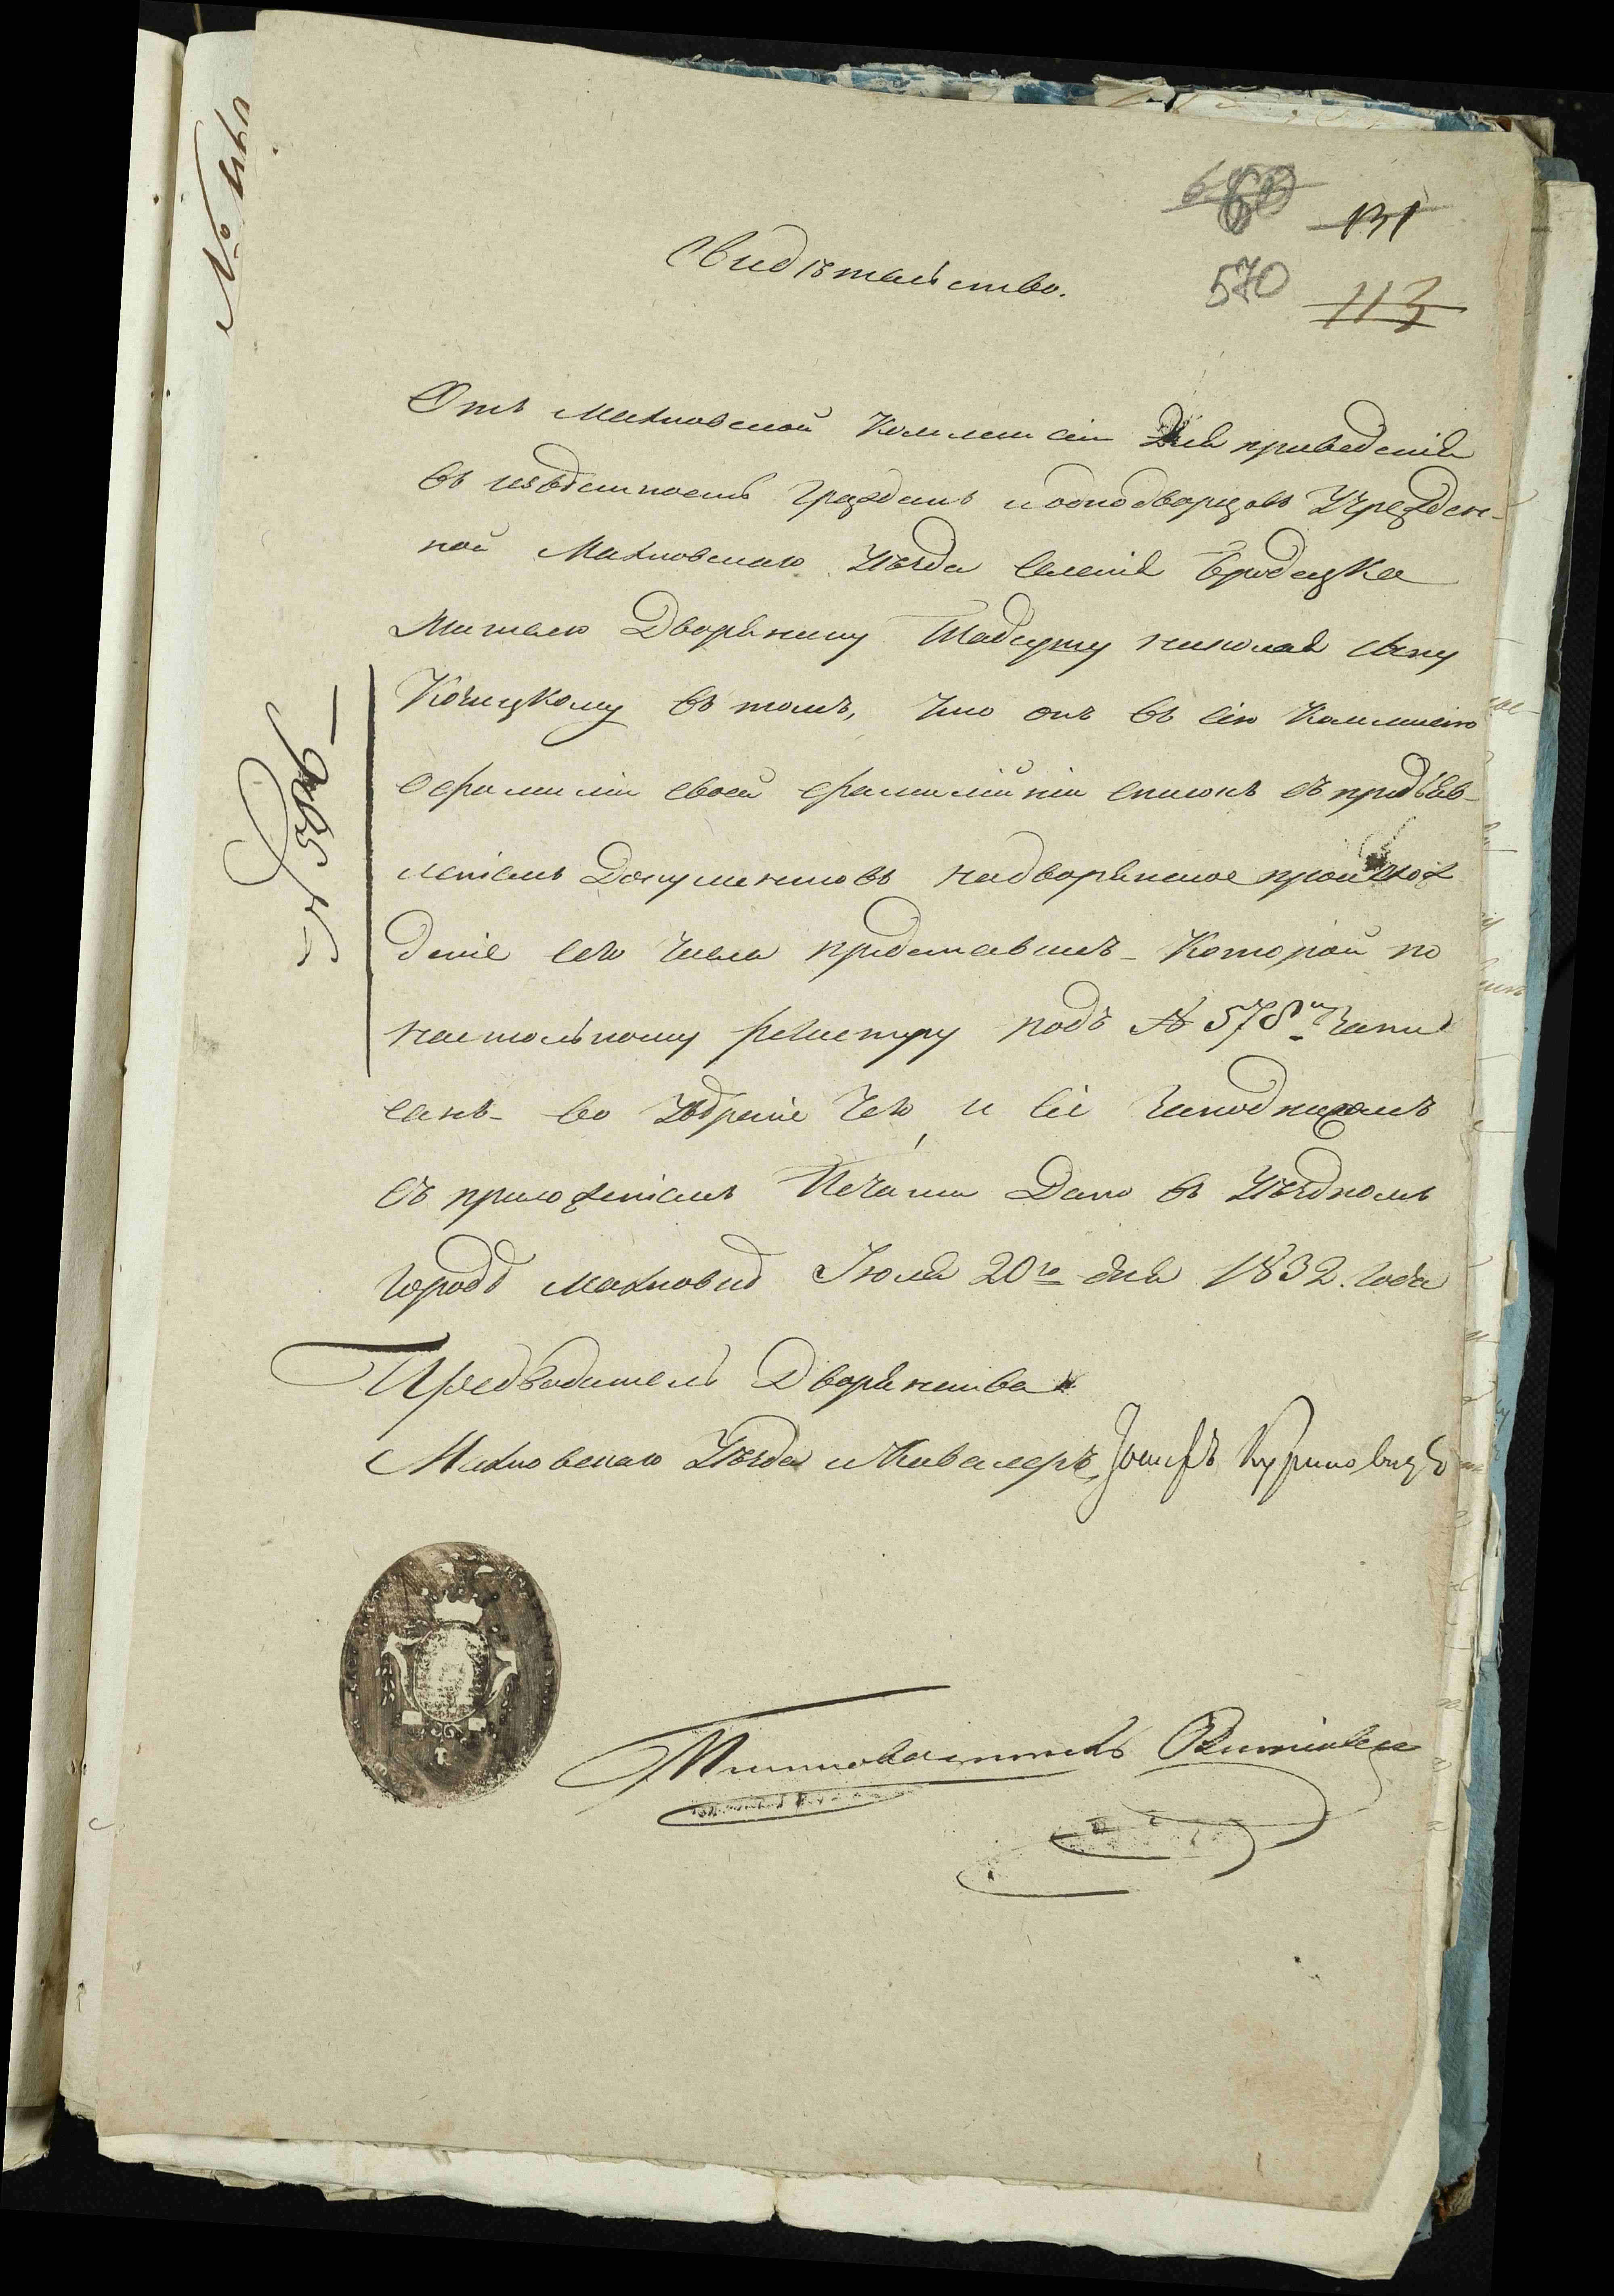 680 131
Свидѣтельство.
570 113
Отъ Махновской Коммисіи Для приведенія
въ извѣстность Граждань и однодворцовъ Учрежден-
ной Махновскаго Уѣзда Селенія Бродецка
Жителю Дворянину Тадеушу николая сыну
Кочицкому въ томъ, что онъ въ сію Коммисію
о фамиліи своей фамилійній списокъ съ предъяв-
леніемъ Документовъ на дворянское происхож
деніе сего числа представилъ - Которой по
настольному регистру подъ № 578 м Запи
санъ - во увѣреніе чего, и сіе за подписомъ
съ приложеніемъ Печати Дано въ Уѣздномъ
городѣ Махновкѣ Іюля 20го дня 1832. года
Предводитель Дворянства
Махновскаго Уѣзда и Кавалеръ Іосифъ
№